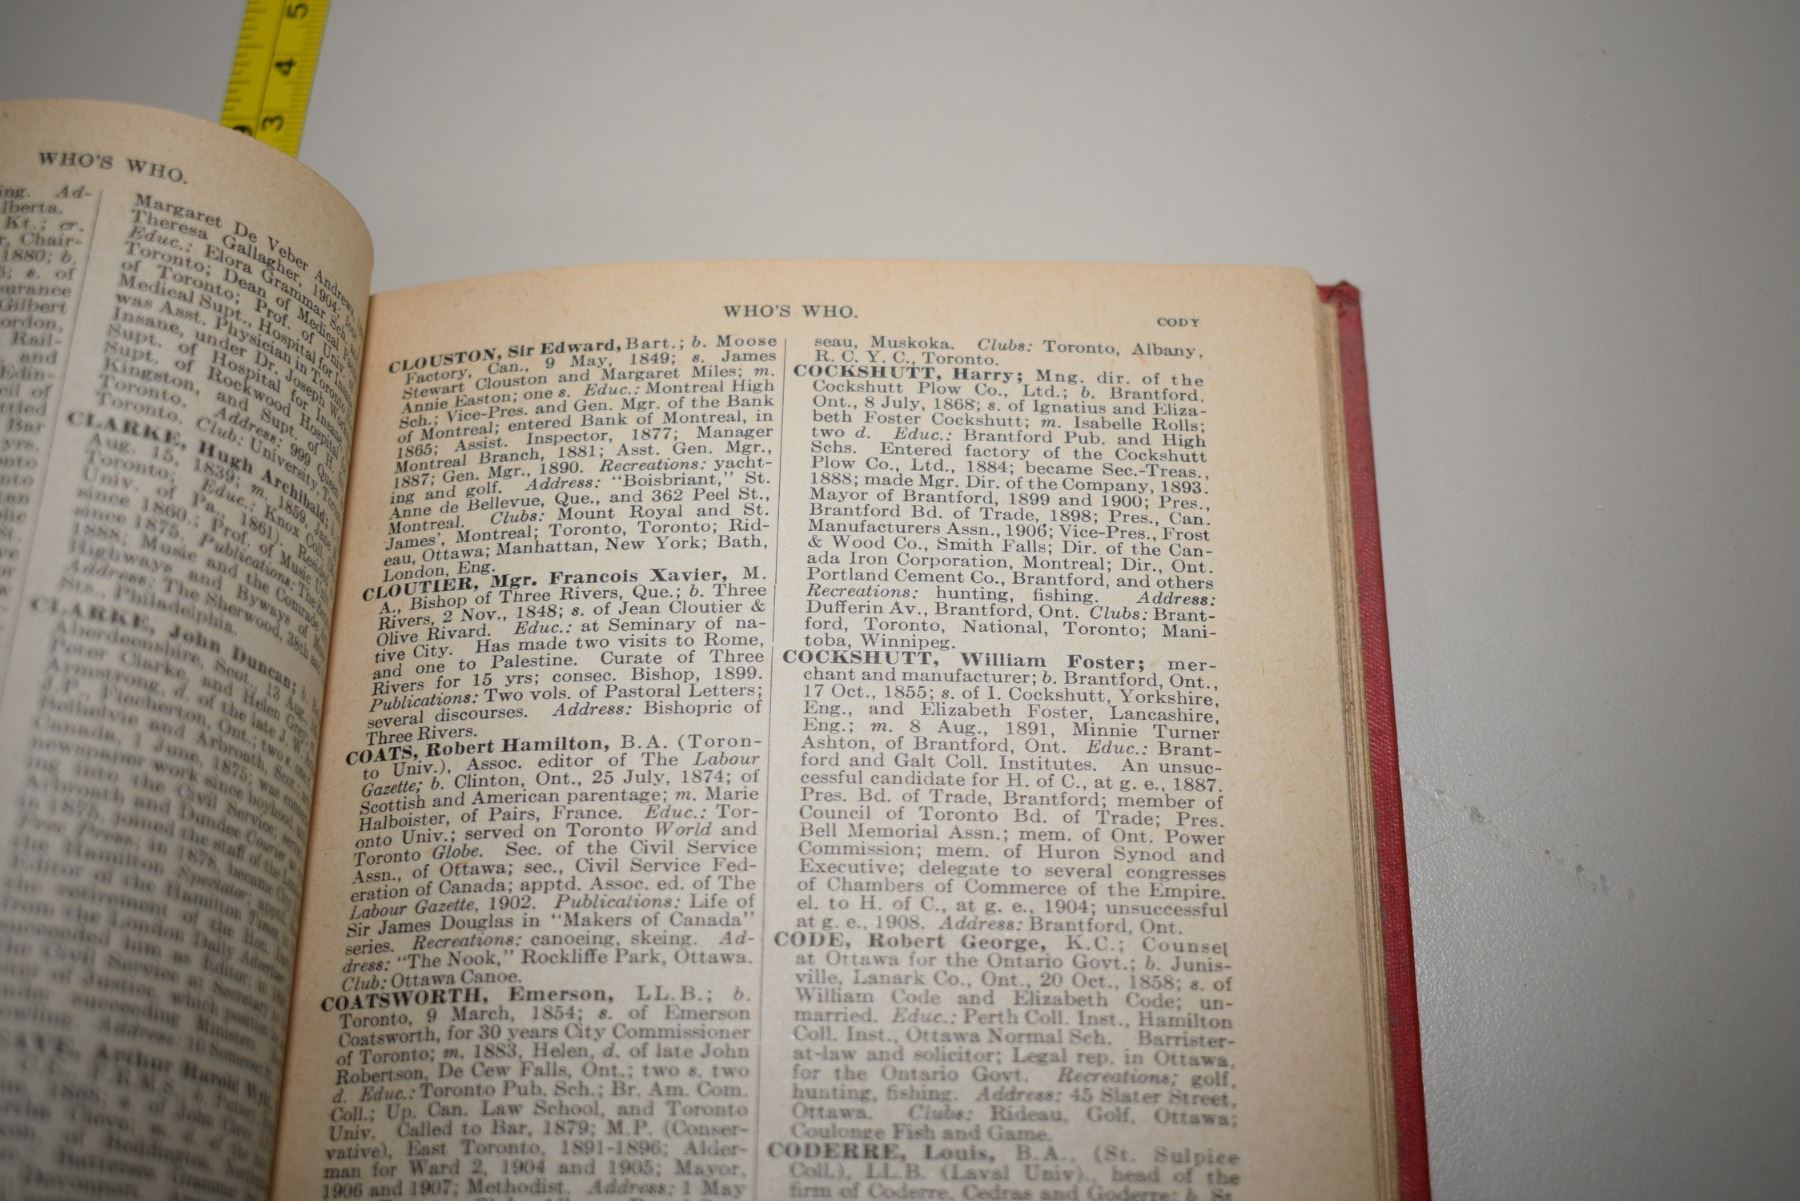 5
4
3
WHO'S WHO.
ing. Ad-
lberta.
Kt.; cr.
r, Chair-
1880; b.
s. of
surance
Gilbert
ordon,
Rail-
and
Edin-
cil of
ttled
Bar
yrs.
Margaret De Veber Andrews,
Theresa Gallagher, 1904;
Educ.: Elora Grammar Sch.,
Toronto; Dean of Medical
of Toronto; Prof. of
Medical Supt., Hospital for
was Asst. Physician in Toronto
Insane, under Dr. Joseph
Supt. of Hospital for Insane,
Supt. of Rockwood Hospital,
Kingston, and Supt. of H.
Toronto. Address: 999 Queen
Toronto. Club: University,
CLARKE, Hugh Archibald;
Aug. 15, 1839; m. 1859,
Toronto; Educ.: Knox Coll.
Univ. of Pa., 1861). Resided
since 1860.; Prof. of Music
since 1875. Publications: The
1888; Music and the Comrade
Highways and Byways of
Address: The Sherwood, 38th and
Sts., Philadelphia.
CLARKE, John Duncan; b.
Aberdeenshire, Scot., 13 Aug.
Peter Clarke, and Helen
Armstrong, d. of the late J. W.
J.P., Flecherton, Ont.; two s. one
Bethelvie and Arbroath, Scot.
Canada, 1 June, 1875; was
newspaper work since boyhood,
ing into the Civil Service;
Arbroath and Dundee Courier
in 1875, joined the staff of the
Free Press; in 1878, became
the Hamilton Spectator;
Editor of the Hamilton Times
the retirement of the Hon.
from the London Daily Advertiser
succeeded him as Editor;
the Civil Service as Secretary
of Justice, which position
under succeeding Ministers.
Address: 16 Somerset
Arthur Harold
WHO'S WHO.
CODY
CLOUSTON, Sir Edward, Bart.; b. Moose
Factory, Can., 9 May, 1849; s. James
Stewart Clouston and Margaret Miles; m.
Annie Easton; one s. Educ.: Montreal High
Sch.; Vice-Pres. and Gen. Mgr. of the Bank
of Montreal; entered Bank of Montreal, in
1865; Assist. Inspector, 1877; Manager
Montreal Branch, 1881; Asst. Gen. Mgr.,
1887; Gen. Mgr., 1890. Recreations: yacht-
ing and golf. Address: "Boisbriant," St.
Anne de Bellevue, Que., and 362 Peel St.,
Montreal. Clubs: Mount Royal and St.
James', Montreal; Toronto, Toronto; Rid-
eau, Ottawa; Manhattan, New York; Bath,
London, Eng.
CLOUTIER, Mgr. Francois Xavier, M.
A., Bishop of Three Rivers, Que.; b. Three
Rivers, 2 Nov., 1848; s. of Jean Cloutier &
Olive Rivard. Educ.: at Seminary of na-
tive City. Has made two visits to Rome,
and one to Palestine. Curate of Three
Rivers for 15 yrs; consec. Bishop, 1899.
Publications: Two vols. of Pastoral Letters;
several discourses. Address: Bishopric of
Three Rivers.
COATS, Robert Hamilton, B.A. (Toron-
to Univ.), Assoc. editor of The Labour
Gazette; b. Clinton, Ont., 25 July, 1874; of
Scottish and American parentage; m. Marie
Halboister, of Pairs, France. Educ.: Tor-
onto Univ.; served on Toronto World and
Toronto Globe. Sec. of the Civil Service
Assn., of Ottawa; sec., Civil Service Fed-
eration of Canada; apptd. Assoc. ed. of The
Labour Gazette, 1902. Publications: Life of
Sir James Douglas in "Makers of Canada"
series. Recreations: canoeing, skeing. Ad-
dress: "The Nook," Rockliffe Park, Ottawa.
Club: Ottawa Canoe.
COATSWORTH, Emerson, LL.B.; b.
Toronto, 9 March, 1854; s. of Emerson
Coatsworth, for 30 years City Commissioner
of Toronto; m. 1883, Helen, d. of late John
Robertson, De Cew Falls, Ont.; two s. two
d. Educ.: Toronto Pub. Sch.; Br. Am. Com.
Coll.; Up. Can. Law School, and Toronto
Univ. Called to Bar, 1879; M.P. (Conser-
vative), East Toronto, 1891-1896; Alder-
man for Ward 2, 1904 and 1905; Mayor,
1906 and 1907; Methodist. Address: 1 May
seau, Muskoka. Clubs: Toronto, Albany,
R. C. Y. C., Toronto.
COCKSHUTT, Harry; Mng. dir. of the
Cockshutt Plow Co., Ltd.; b. Brantford,
Ont., 8 July, 1868; s. of Ignatius and Eliza-
beth Foster Cockshutt; m. Isabelle Rolls;
two d. Educ.: Brantford Pub. and High
Schs. Entered factory of the Cockshutt
Plow Co., Ltd., 1884; became Sec.-Treas.,
1888; made Mgr. Dir. of the Company, 1893.
Mayor of Brantford, 1899 and 1900; Pres.,
Brantford Bd. of Trade, 1898; Pres., Can.
Manufacturers Assn., 1906; Vice-Pres., Frost
& Wood Co., Smith Falls; Dir. of the Can-
ada Iron Corporation, Montreal; Dir., Ont.
Portland Cement Co., Brantford, and others
Recreations: hunting, fishing. Address:
Dufferin Av., Brantford, Ont. Clubs: Brant-
ford, Toronto, National, Toronto; Mani-
toba, Winnipeg.
COCKSHUTT, William Foster; mer-
chant and manufacturer; b. Brantford, Ont.,
17 Oct., 1855; s. of I. Cockshutt, Yorkshire,
Eng., and Elizabeth Foster, Lancashire,
Eng.; m. 8 Aug., 1891, Minnie Turner
Ashton, of Brantford, Ont. Educ.: Brant-
ford and Galt Coll. Institutes. An unsuc-
cessful candidate for H. of C., at g. e., 1887.
Pres. Bd. of Trade, Brantford; member of
Council of Toronto Bd. of Trade; Pres.
Bell Memorial Assn.; mem. of Ont. Power
Commission; mem. of Huron Synod and
Executive; delegate to several congresses
of Chambers of Commerce of the Empire.
el. to H. of C., at g. e., 1904; unsuccessful
at g. e., 1908. Address: Brantford, Ont.
CODE, Robert George, K.C.; Counsel
at Ottawa for the Ontario Govt.; b. Junis-
ville, Lanark Co., Ont., 20 Oct., 1858; s. of
William Code and Elizabeth Code; un-
married. Educ.: Perth Coll. Inst., Hamilton
Coll. Inst., Ottawa Normal Sch. Barrister-
at-law and solicitor; Legal rep. in Ottawa,
for the Ontario Govt. Recreations; golf,
hunting, fishing. Address: 45 Slater Street,
Ottawa. Clubs: Rideau, Golf, Ottawa;
Coulonge Fish and Game.
CODERRE, Louis, B.A., (St. Sulpice
Coll.), LL.B. (Laval Univ)., head of the
firm of Coderre, Cedras and Goderre; b. St.